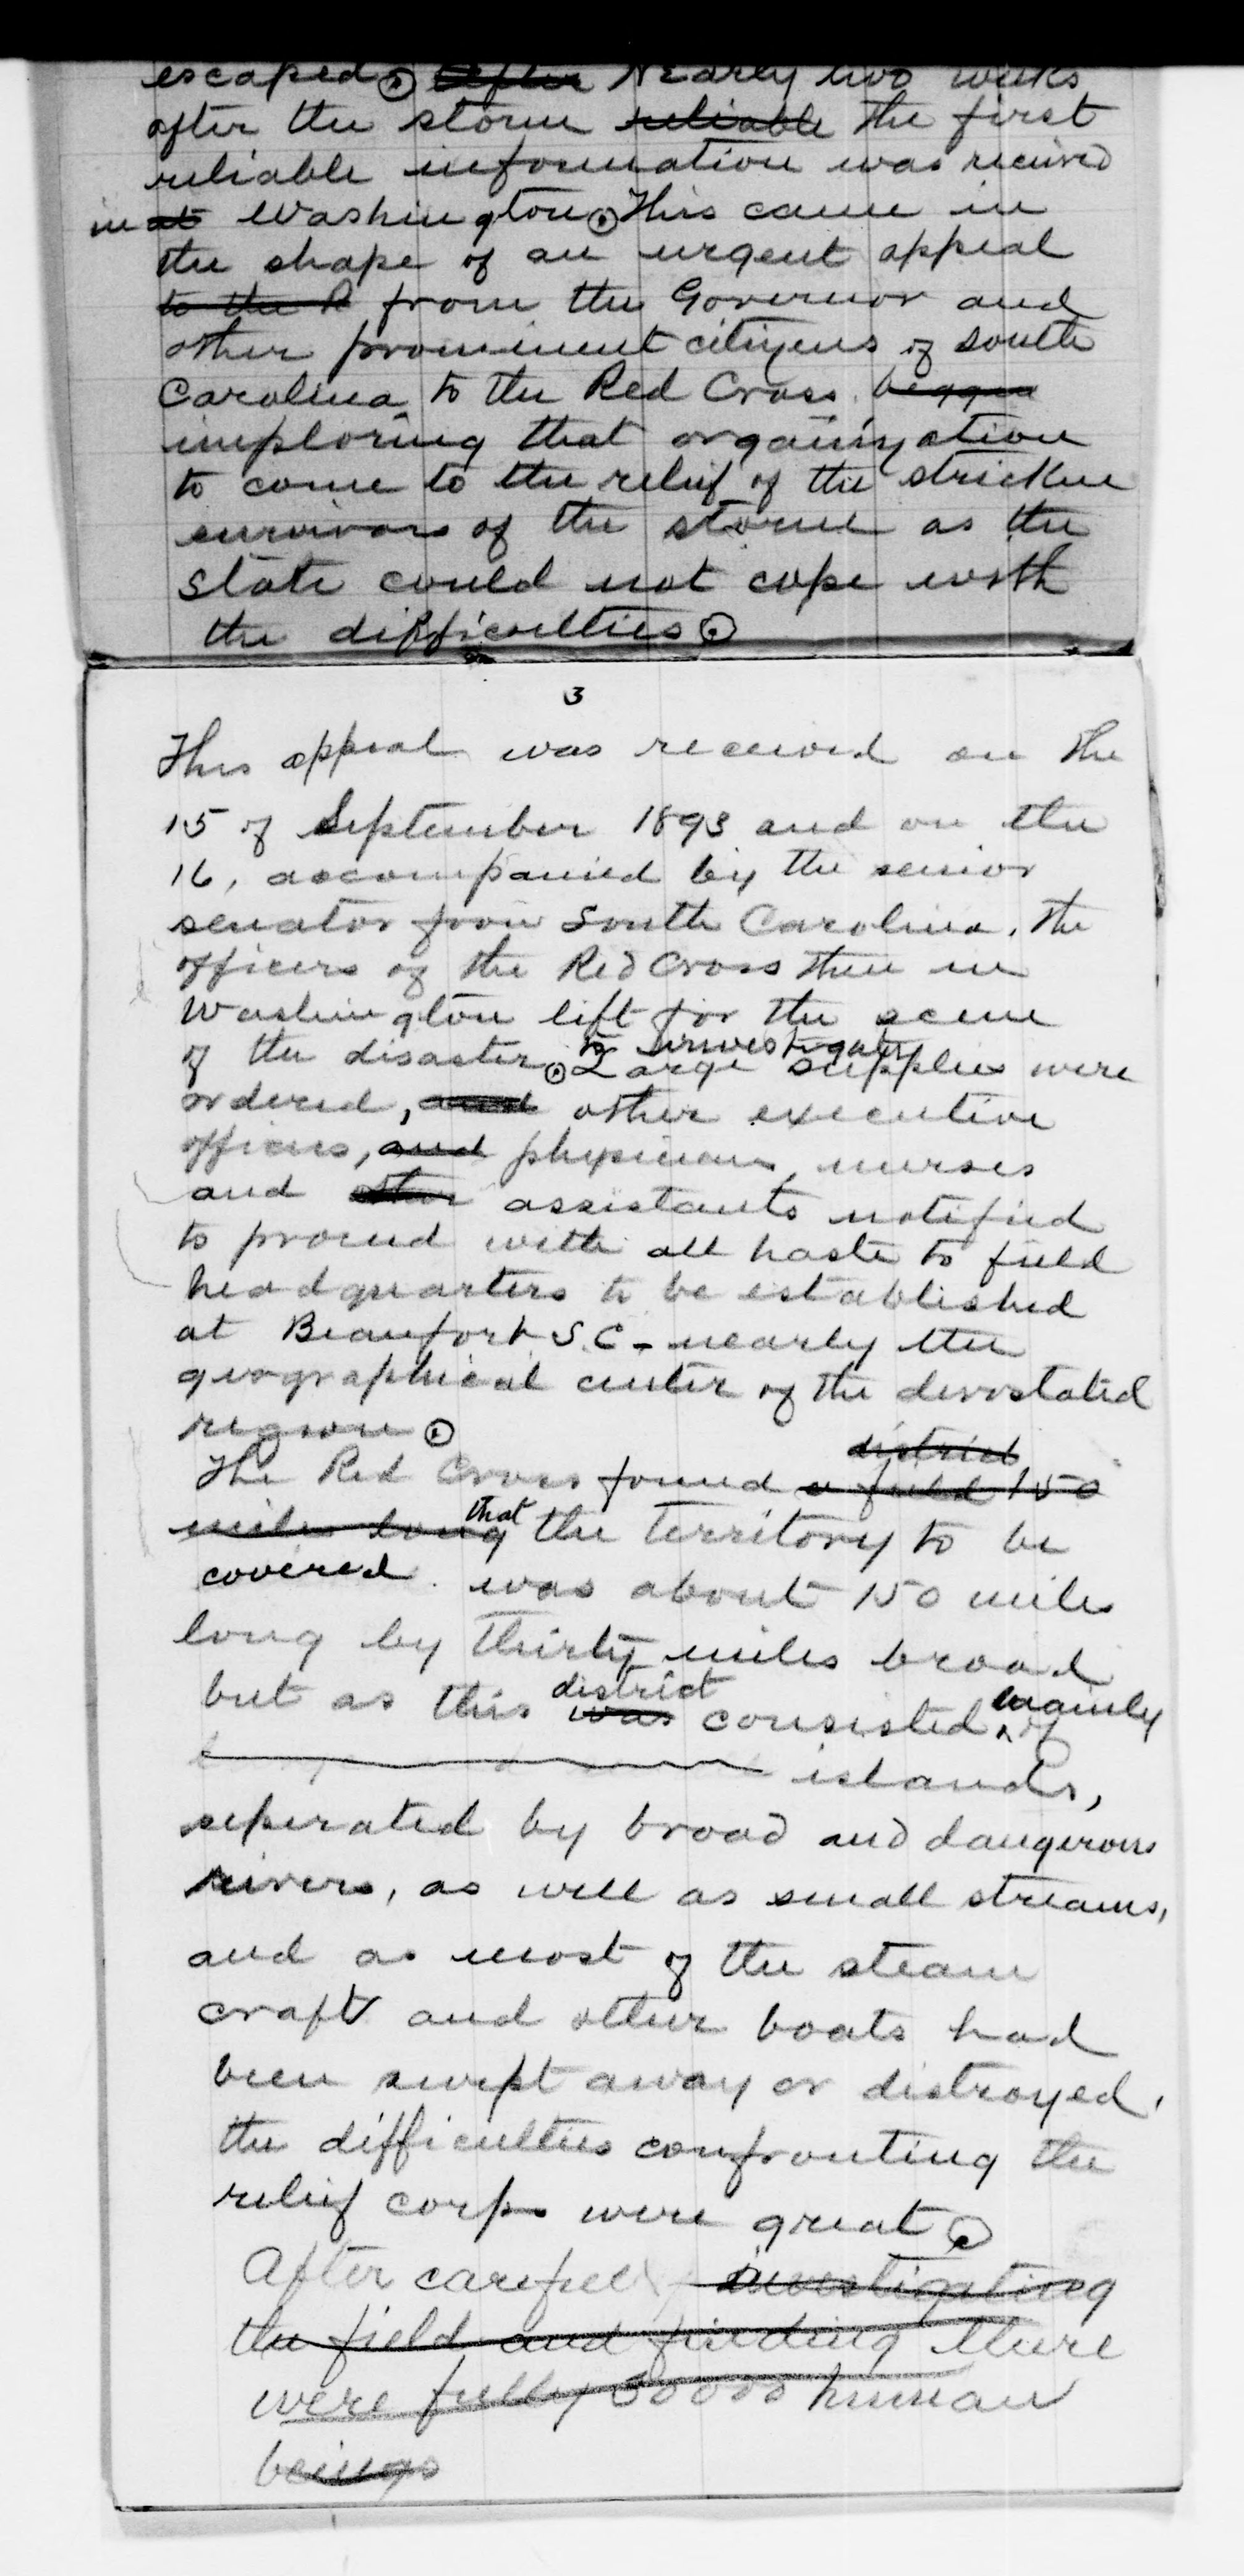 escaped. After Nearly two weeks
after the storm reliable the first
reliable information was received
in at Washington. This came in
the shape of an urgent appeal
to the R from the Governor and
other prominent citizens of South
Carolina, to the Red Cross, begged
imploring that organization
to come to the relief of the stricken
survivors of the storm as the
state could not cope with
the difficulties.
3
This appeal was received on the
15 of September 1893 and on the
16, accompanied by the senior
senator from South Carolina, the
officers of the Red Cross then in
Washington left for the scene
to investigate
of the disaster. Large supplies were
ordered, and other executive
officers, and physicians, nurses
and other assistants notified
to proceed with all haste to field
headquarters to be established
at Beaufort S.C - nearly the
geographical center of the devastated
region.
district
The Red Cross found a field 150
miles long that the territory to be
covered was about 150 miles
long by thirty miles broad
district mainly
but as this was consisted of
islands,
seperated by broad and dangerous
rivers, as well as small streams,
and as most of the steam
craft and other boats had
been swept away or distroyed,
the difficulties confronting the
relief corps were great.
After careful investigating
the field and finding there
were fully 30000 human
beings